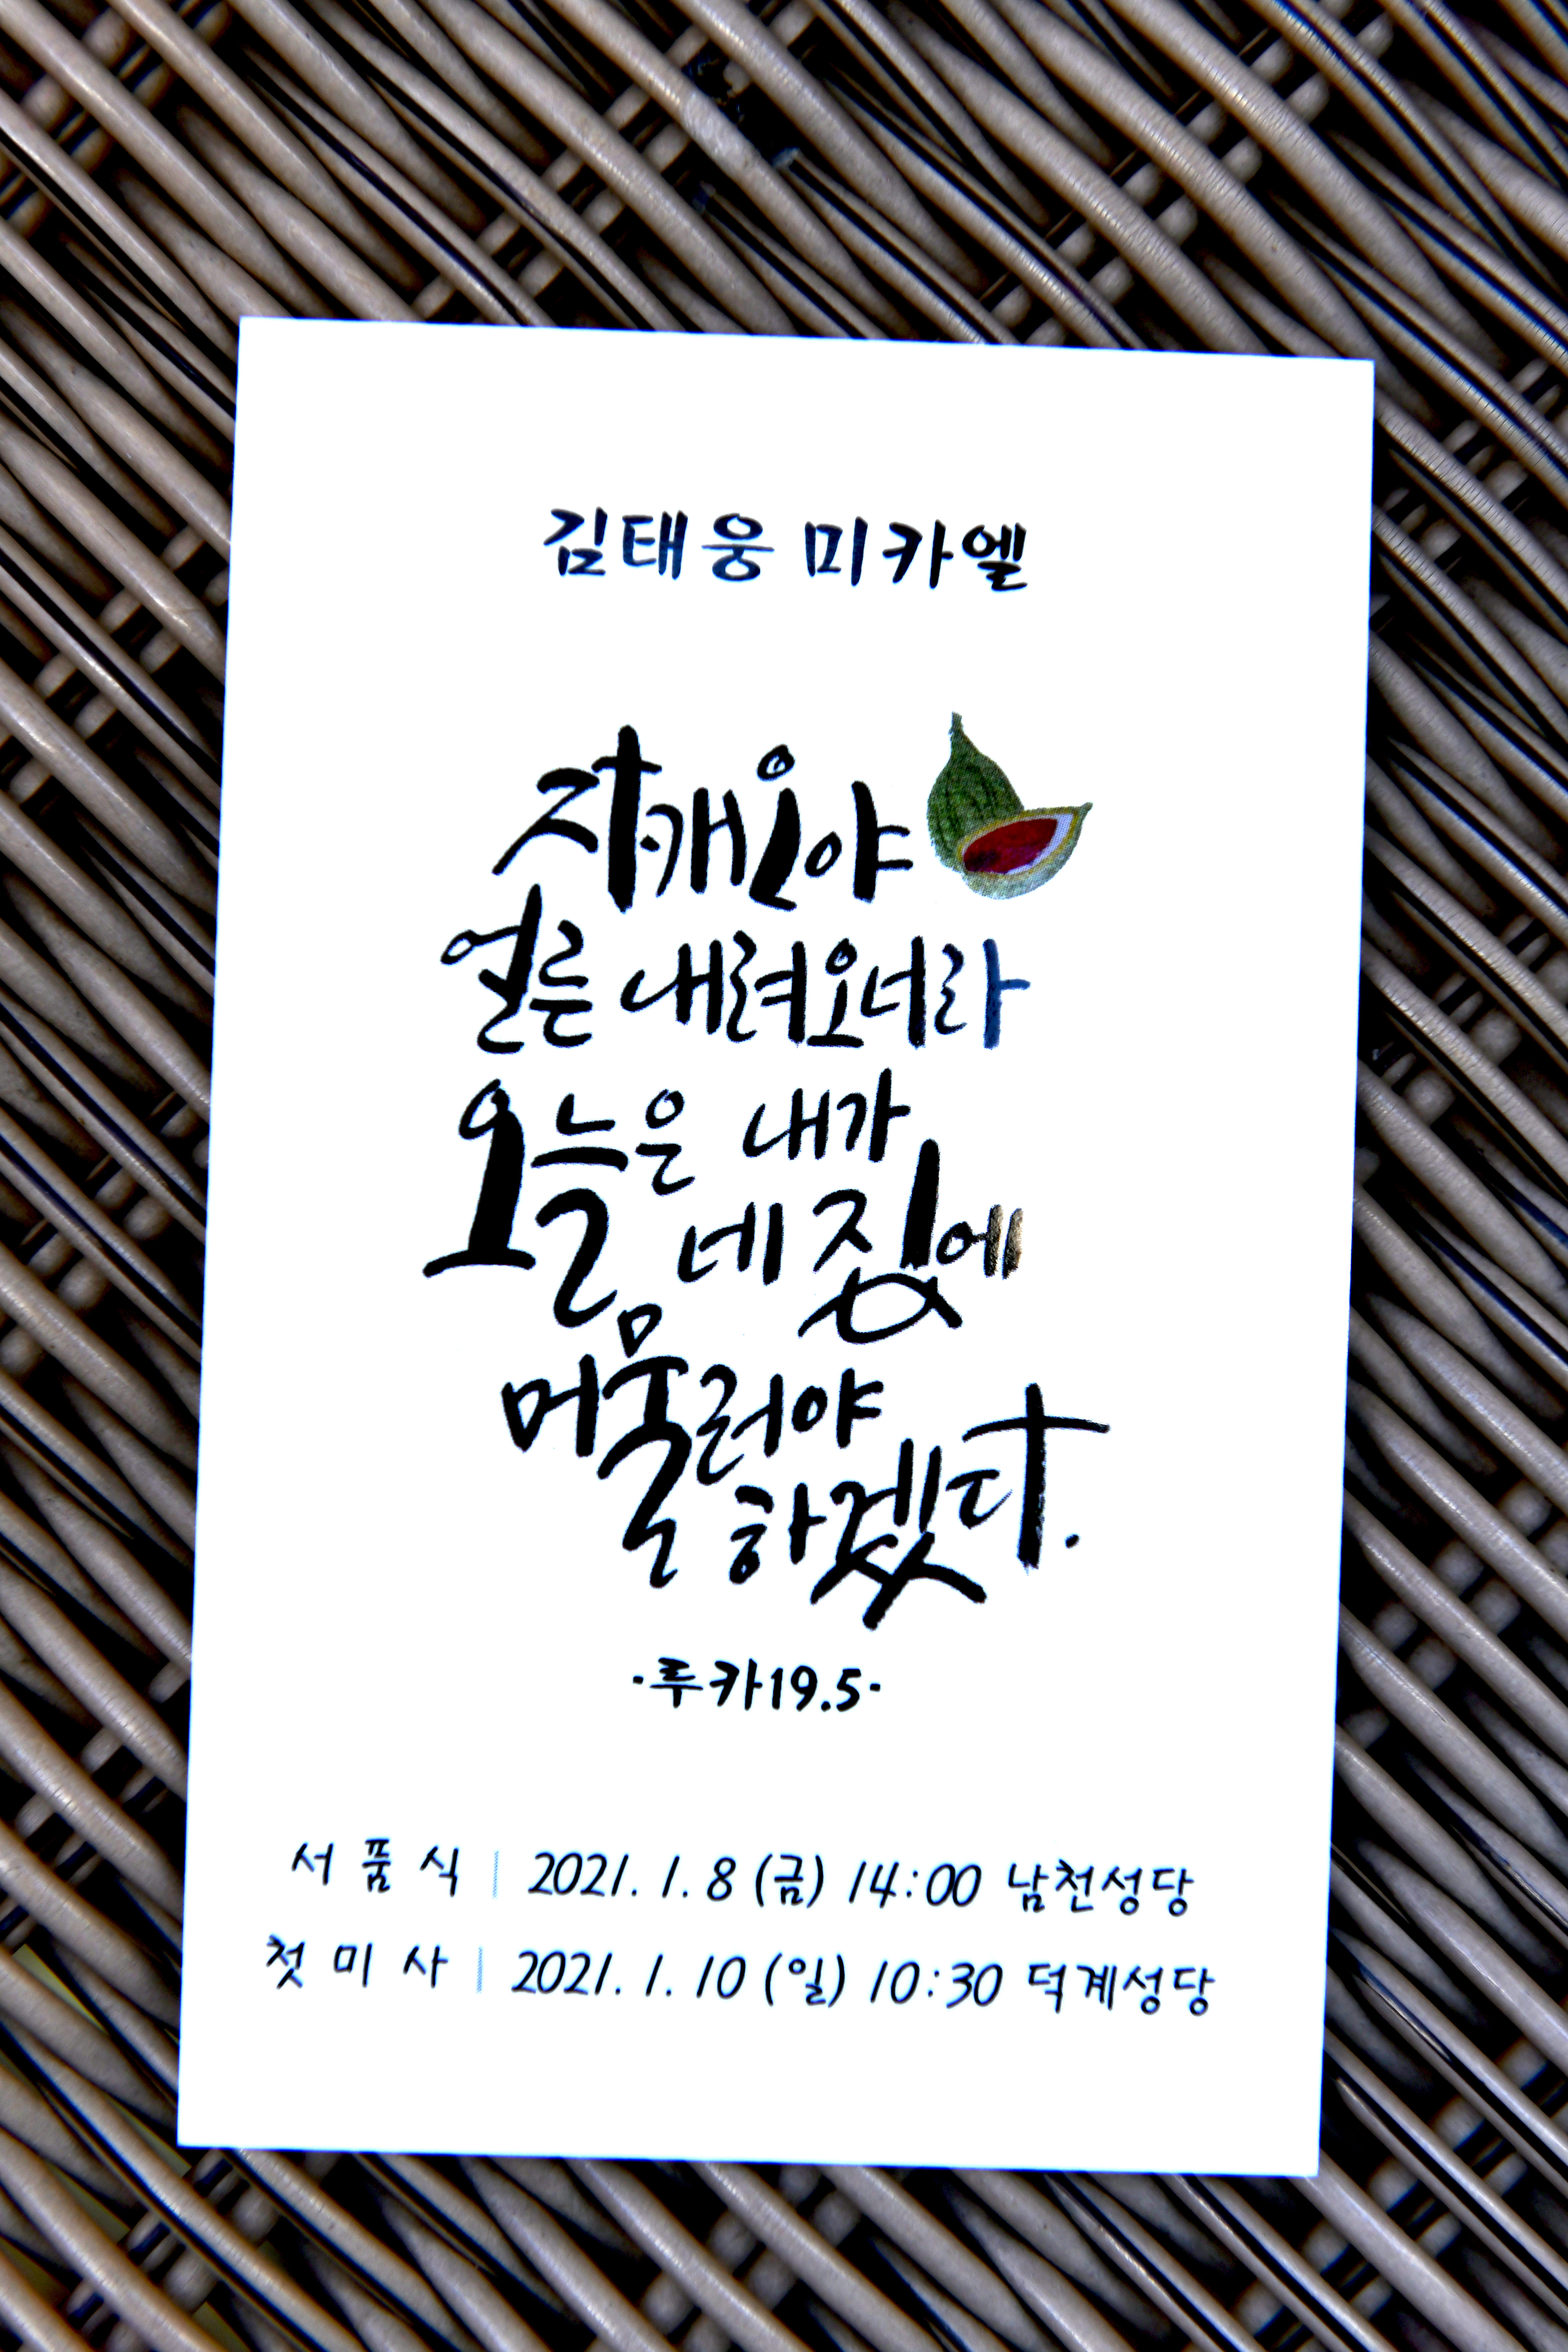 김태웅 미카엘
자캐오야
얼른 내려오너라
오늘은 내가
네 집에
머물러야
하겠다.
·루카19.5·
서 품 식 | 2021. 1. 8 (금) 14:00 남천성당
첫 미 사 | 2021. 1. 10 (일) 10:30 덕계성당